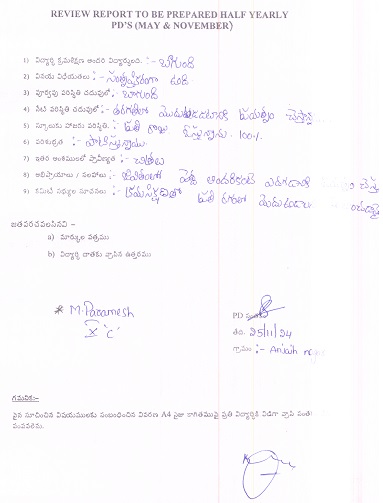 REVIEW REPORT TO BE PREPARED HALF YEARLY
PD'S (MAY & NOVEMBER)
1) విద్యార్థి క్రమశిక్షణ అందరి విద్యార్థులది. :- బాగుంది
2) వినయ విధేయతలు :- సంతృప్తికరంగా ఉంది
3) పూర్వపు పరిస్థితి చదువులో :- బాగుంది
4) నేటి పరిస్థితి చదువులో :- తరగతిలో
5) స్కూలుకు హాజరు పరిస్థితి. :- ప్రతి రోజు 100%
6) పరిశుభ్రత :- పాటిస్తున్నాడు
7) ఇతర అంశములలో ప్రావీణ్యత :-
8) అభిప్రాయాలు / సలహాలు :- జీవితంలో
9) కమిటీ సభ్యుల సూచనలు :- ప్రతి
జతపరచవలసినవి –
a) మార్కుల పత్రము
b) విద్యార్థి దాతకు వ్రాసిన ఉత్తరము
* M. Paramesh
X 'C'
PD
తేది. 25/11/24
గ్రామం :- Anjaih
గమనిక:–
పైన సూచించిన విషయములకు సంబంధించిన వివరణ A4 సైజు కాగితముపై ప్రతి విద్యార్థికి విడిగా వ్రాసి
పంపవలెను.